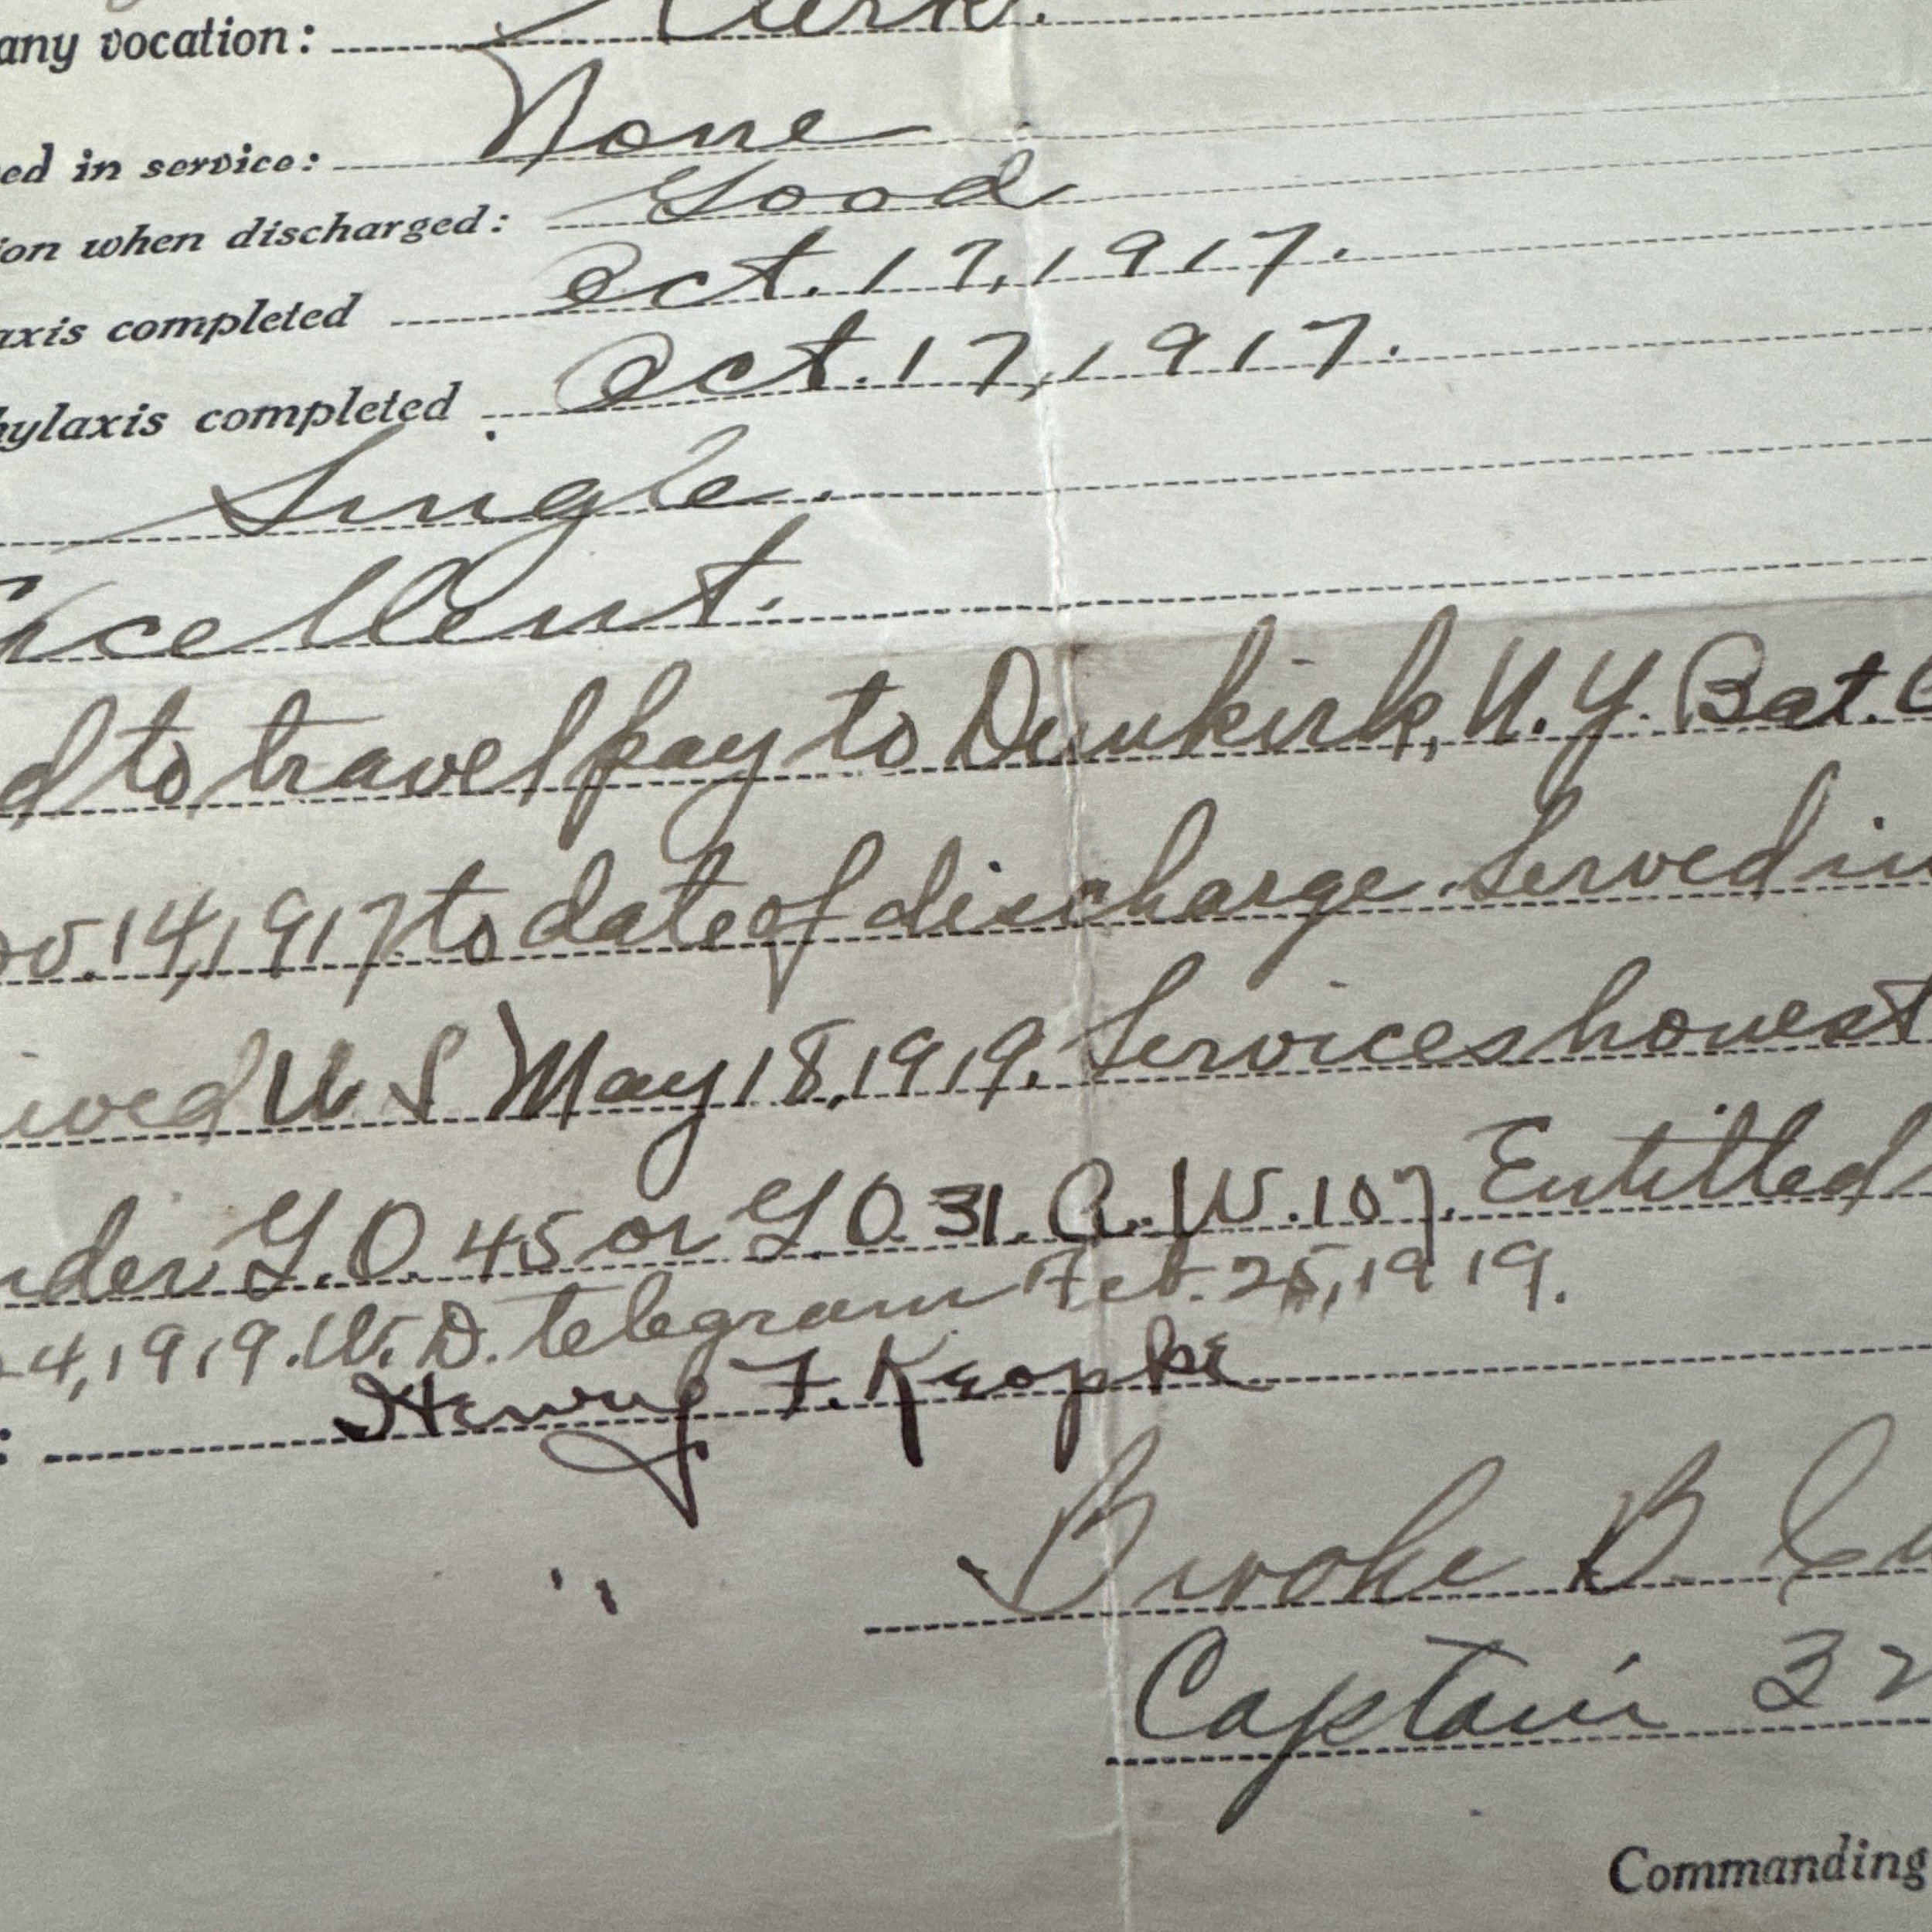 any vocation: Clerk.
ed in service: None
ion when discharged: Good
axis completed Oct. 17, 1917.
hylaxis completed Oct. 17, 1917.
Single.
Excellent.
d to travel pay to Dunkirk, N.Y. Bat. C
ov. 14, 1917 to date of discharge. Served in
ived U S May 18, 1919. Services honest
nder G.O. 45 or G O. 31. A.W. 107. Entitled
4, 1919. W.D. telegram Feb. 25, 1919.
: Henry F. Kropke
Brooke B.
Captain 32
Commanding